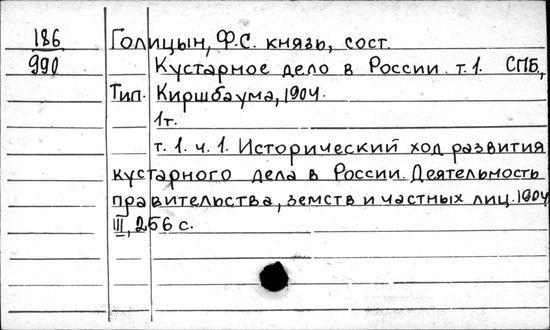 186
990
Голицын, Ф.С. князь, сост.
Кустарное дело в России. т.1. СПБ,
Тип. Киршбаума, 1904.
1т.
т. 1. ч. 1. Исторический ход развития
кустарного дела в России. Деятельность
правительства, земств и частных лиц. 1904
III, 256 с.